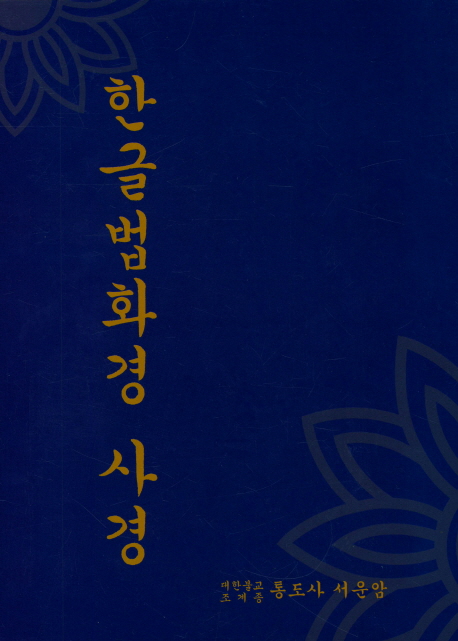 한글법화경 사경
대한불교
조계종
통도사 서운암